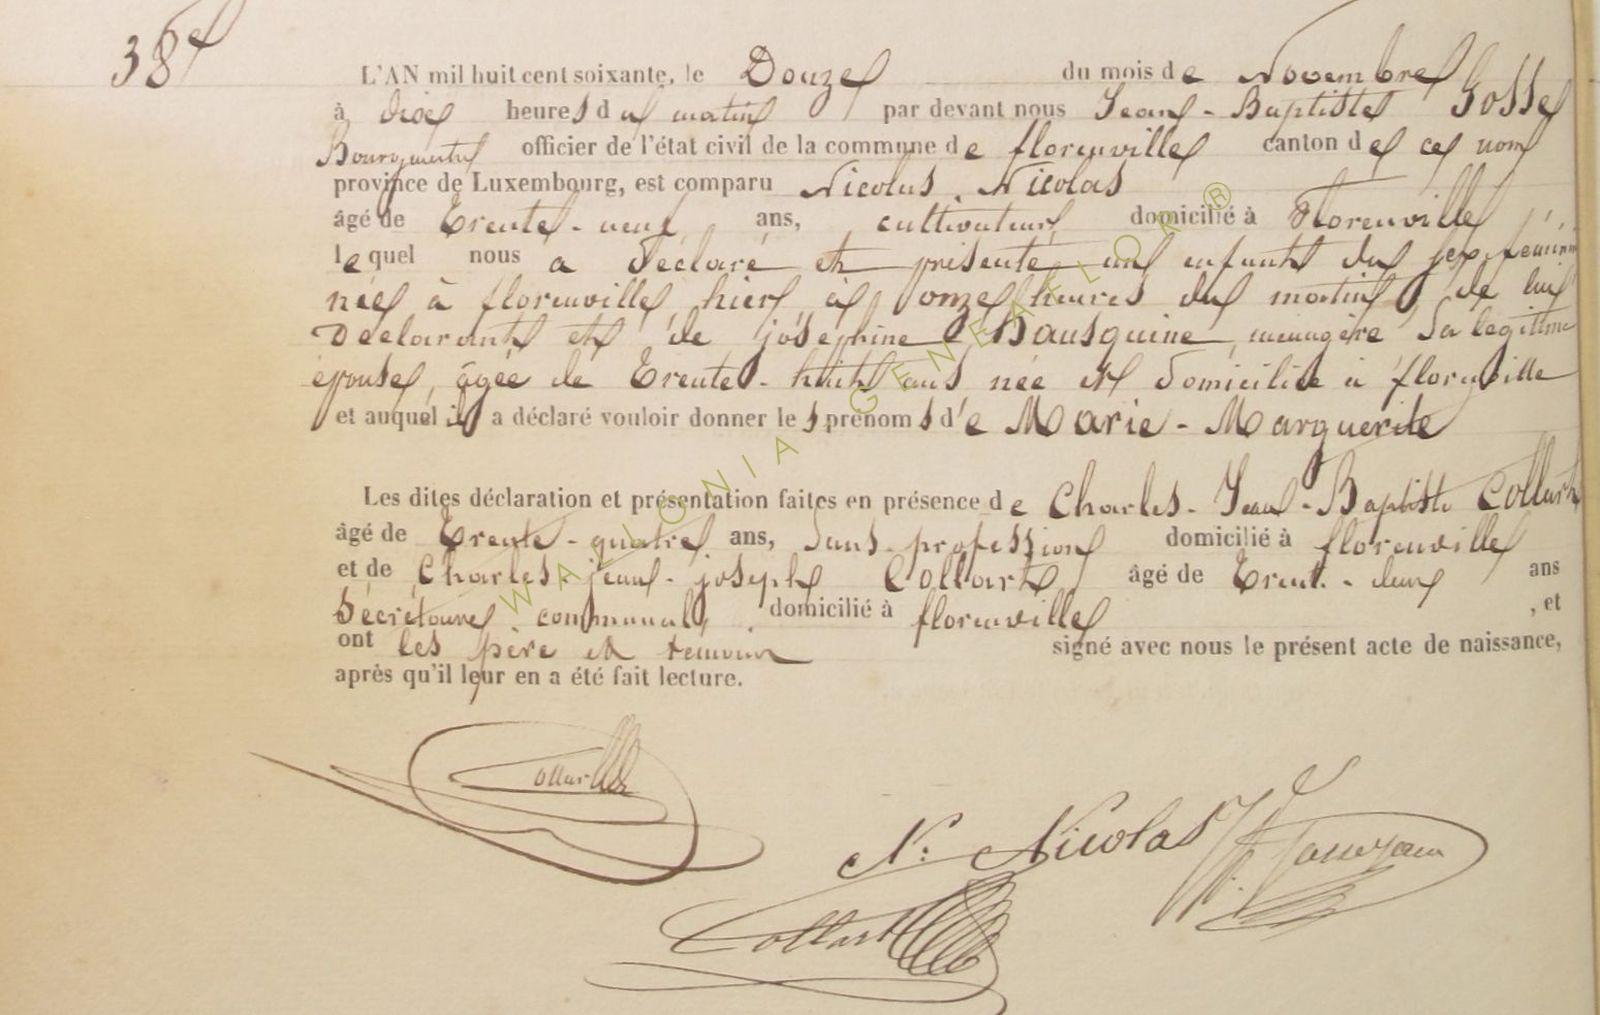 38e
L'AN mil huit cent soixante, le Douze du mois de Novembre
à dix heures du matin par devant nous Jean-Baptiste Gosse
Bourgmestre officier de l'état civil de la commune de florenville canton de ce nom
province de Luxembourg, est comparu Nicolas Nicolas
âgé de Trente-neuf ans, cultivateur domicilié à Florenville
lequel nous a déclaré et présenté un enfant du sexe féminin
née à florenville hier à onze heures du matin, de lui
Déclarant et de joséphine Hausquine menagère Sa légitime
épouse, âgée de Trente-huit ans née et domiciliée à florenville
et auquel il a déclaré vouloir donner les prénoms de Marie-Marguerite
Les dites déclaration et présentation faites en présence de Charles-Jean-Baptiste Collart
âgé de Trente-quatre ans, Sans profession domicilié à florenville
et de Charles-jean-joseph Collart âgé de Trente-deux ans
Sécrétaire communal, domicilié à florenville , et
ont les père et temoins signé avec nous le présent acte de naissance,
après qu'il leur en a été fait lecture.
Collart
N: Nicolas
Collart
WALLONIA GENEALOR ®